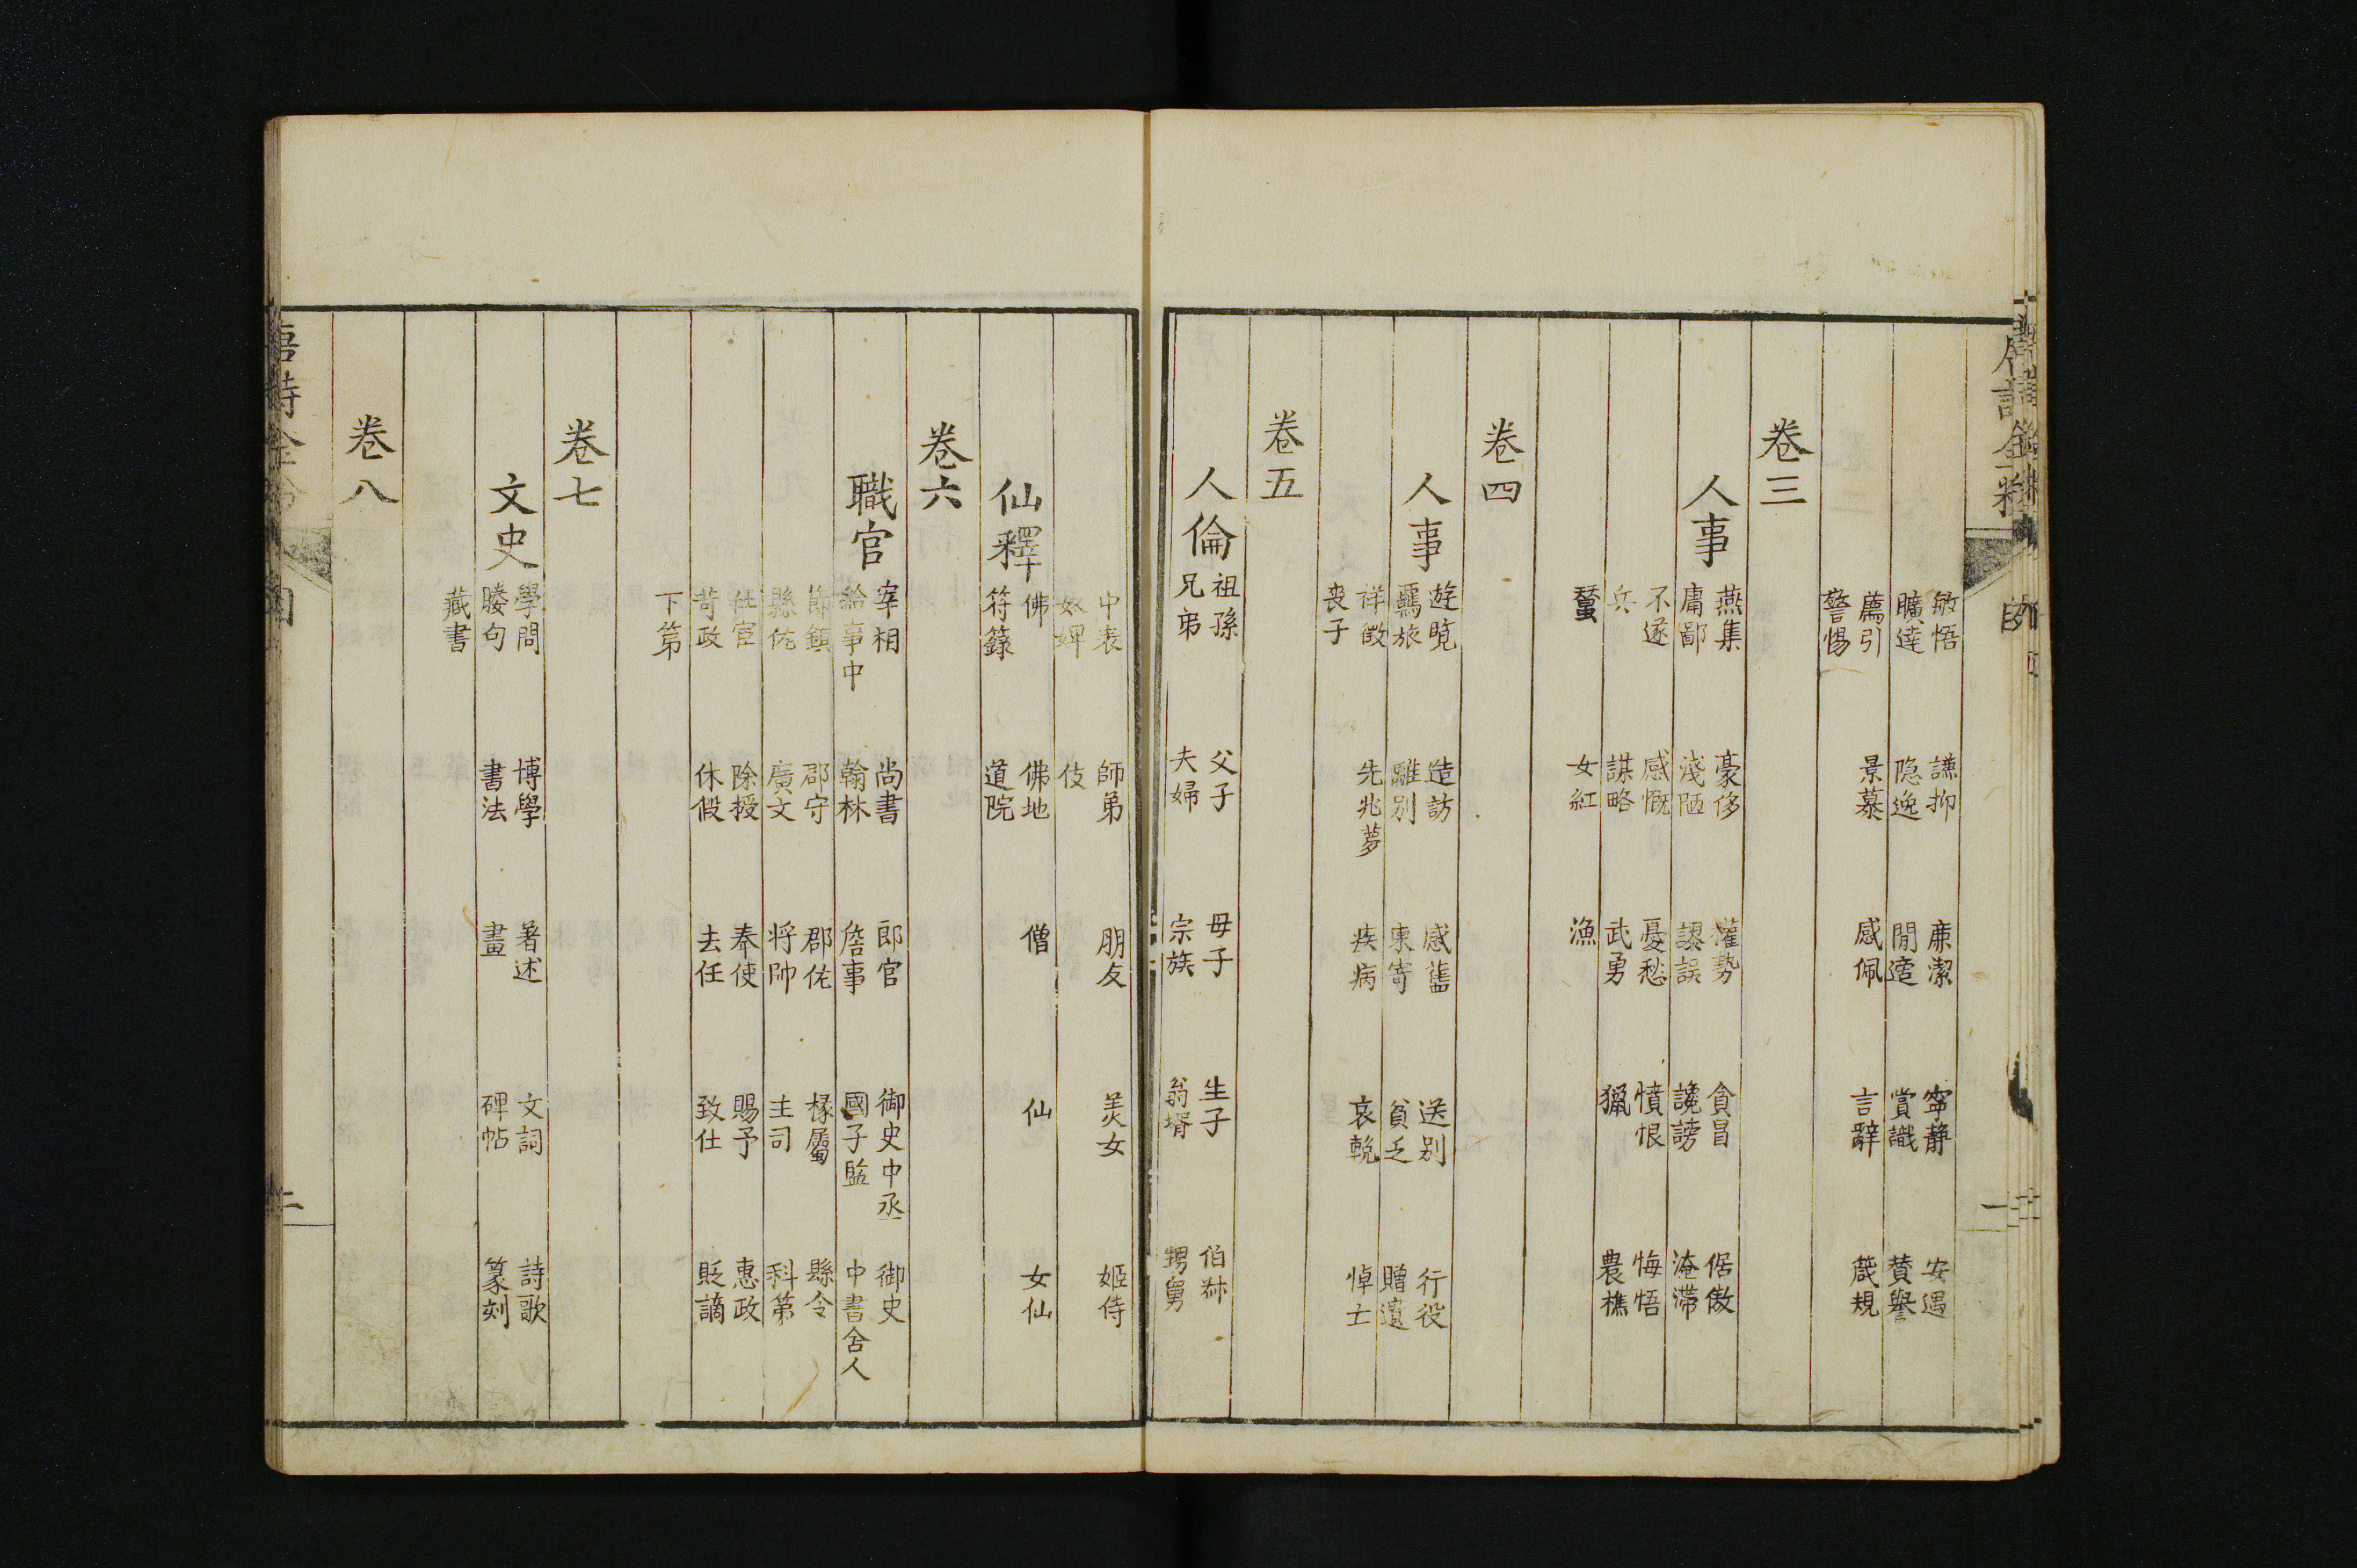 敏悟 謙抑 廉潔 寧靜 安遇
曠達 隐逸 閒適 賞識 賛譽
薦引 景慕 感佩 言辭 箴規
警惕
卷三
人事
燕集 豪侈 權勢 貪冒 倨傲
庸鄙 淺陋 謬誤 讒謗 淹滯
不遂 感慨 憂愁 憤恨 悔悟
兵 謀略 武勇 獵 農樵
蠶 女紅 漁
卷四
人事
遊覧 造訪 感舊 送别 行役
羈旅 離别 柬寄 貧乏 贈遺
祥徵 先兆夢 疾病 哀輓 悼亡
喪子
卷五
人倫
祖孫 父子 母子 生子 伯叔
兄弟 夫婦 宗族 翁壻 甥舅
中表 師弟 朋友 美女 姬侍
奴婢 伎
仙釋
佛 佛地 僧 仙 女仙
符籙 道院
卷六
職官
宰相 尚書 郎官 御史中丞 御史
給事中 翰林 詹事 國子監 中書舍人
節鎮 郡守 郡佐 椽屬 縣令
縣佐 廣文 将帥 主司 科第
仕宦 除授 奉使 賜予 惠政
苛政 休假 去任 致仕 貶謫
下第
卷七
文史
學問 博學 著述 文詞 詩歌
賸句 書法 畫 碑帖 篆刻
藏書
卷八
二